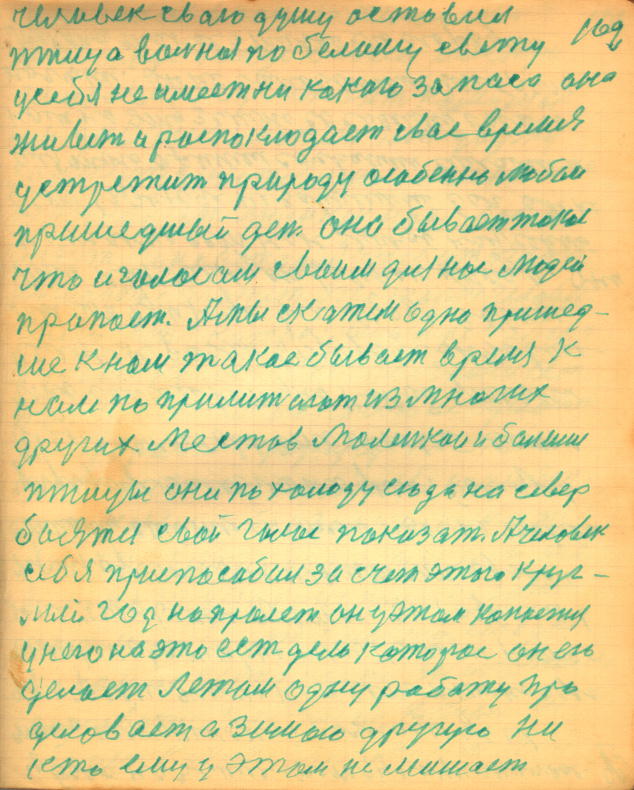 человек свого душу оставил
птица волная по белому свету 169
у себя не имеет ни какого запаса она
живет и роспоклодает свое время
устретит природу особенно любои
пришедший ден. она бывает такои
что и голосам своим для нас людей
пропоет. А мы скажем одно пришед-
ше к нам такое бывает время к
нам по прилитают из многих
других местов маленкаи и болшии
птицы они по холоду сюда на север
боятся свой голос показат. А человек
себя приспособил за счет этого круг-
лый год на пролет он у этом копается
у него на это ест дело которое он его
делает Летом одну работу про
деловает а Зимою другую Ни
кто ему у этом не мешает